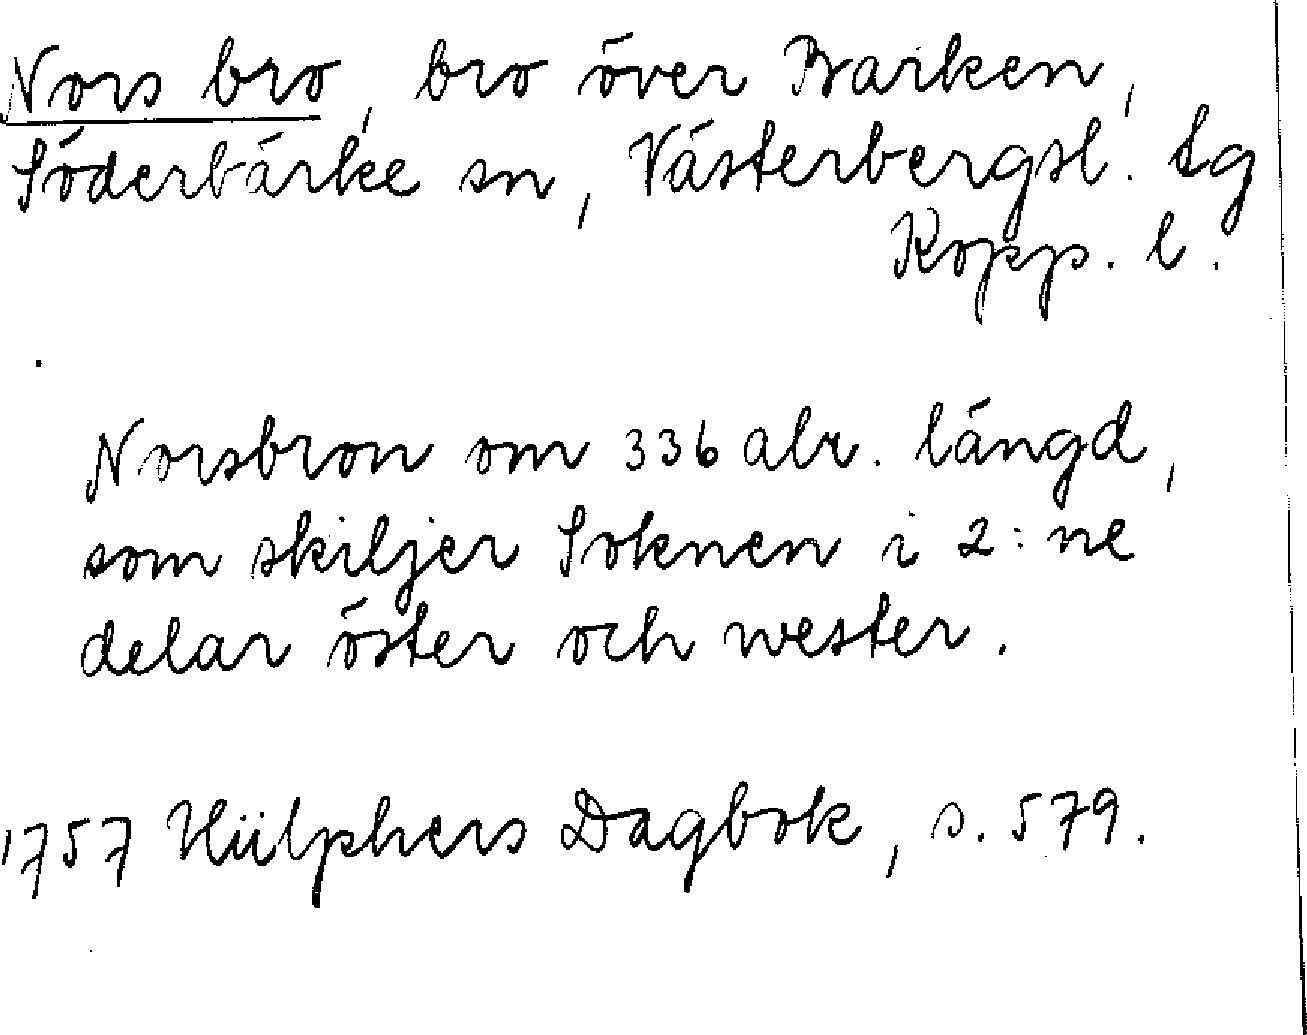 Nors bro, bro över Barken,
Söderbärke sn, Västerbergsl. tg
Kopp. l.
Norsbron om 336 alr. längd,
som skiljer Soknen i 2:ne
delar öster och wester.
1757 Hülphers Dagbok, s. 579.